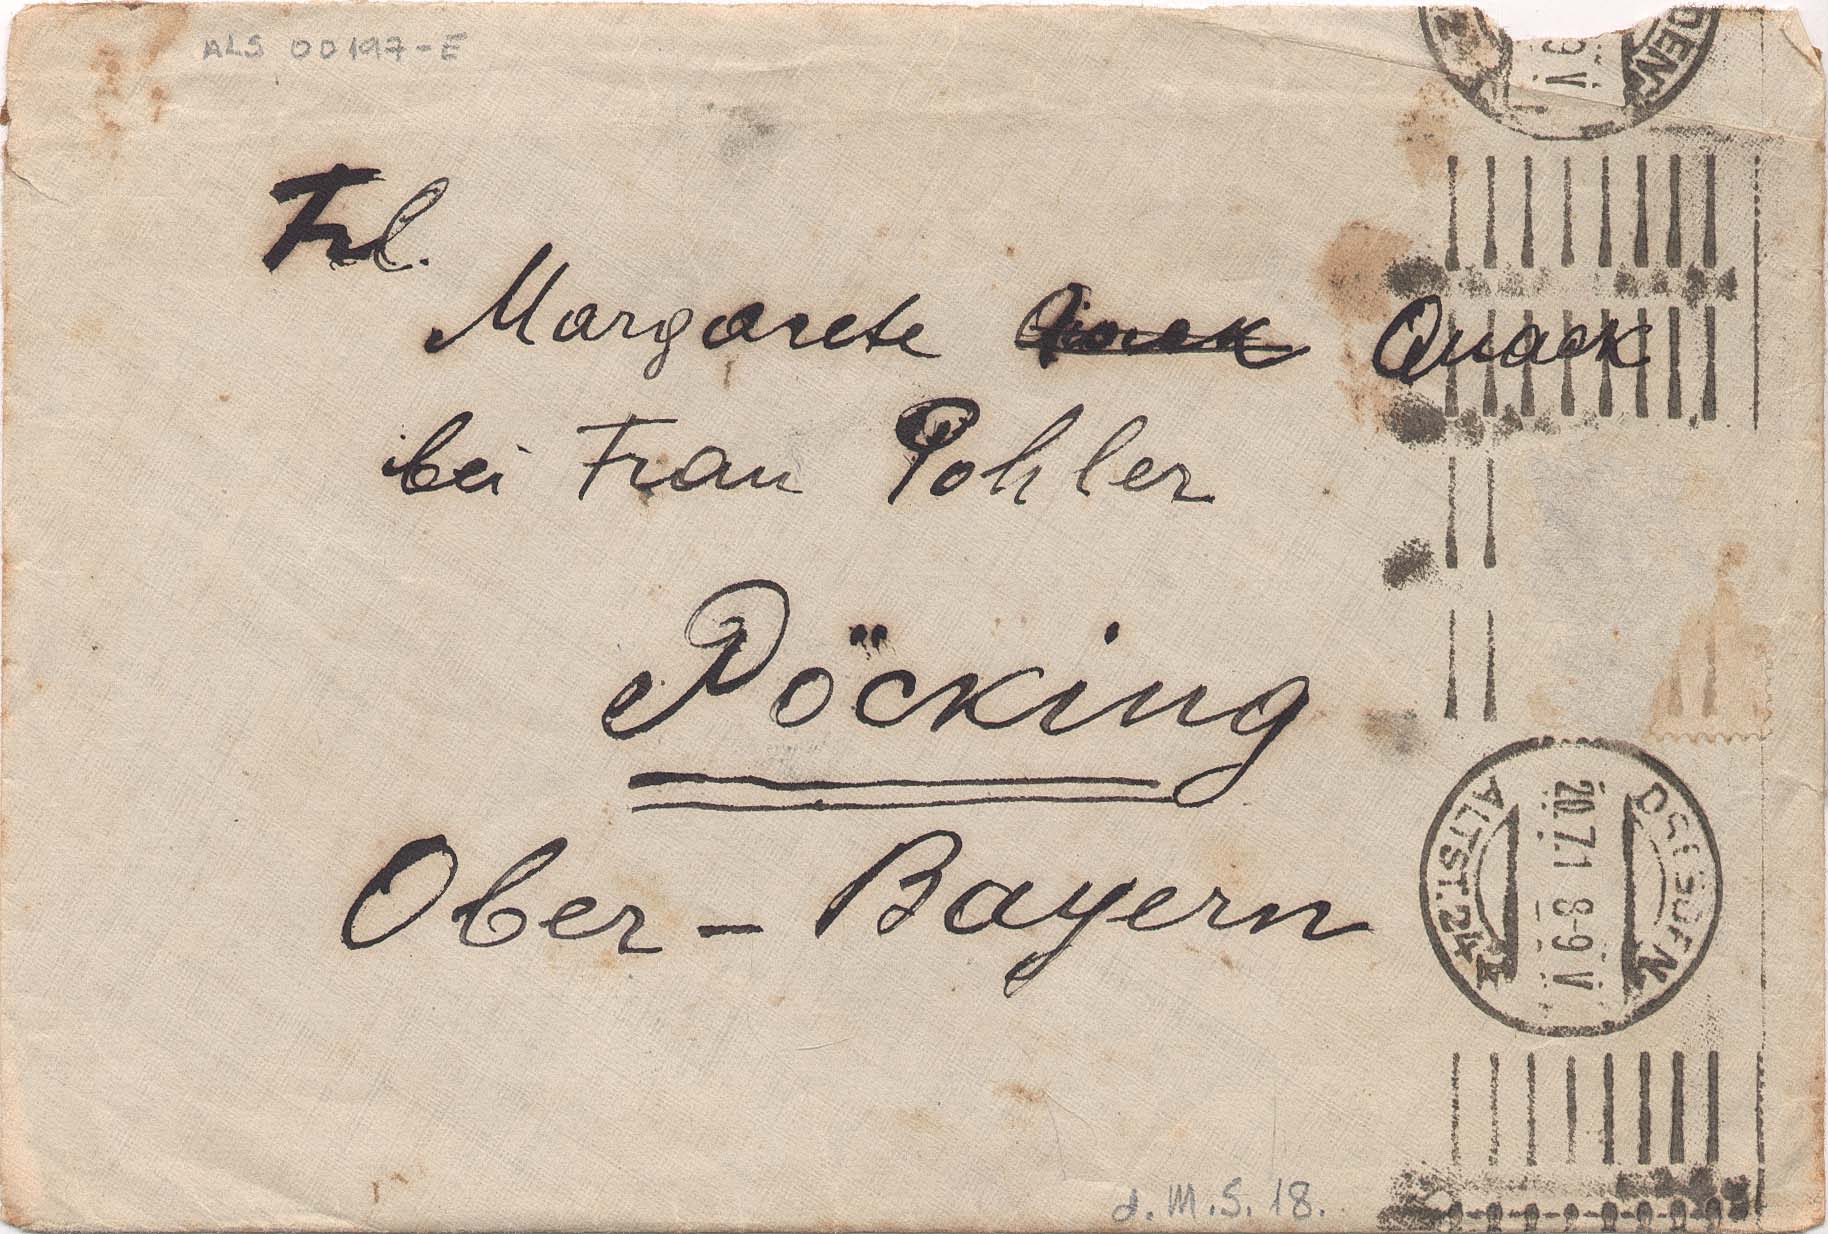 ALS 00197-E
Frl.
Margarete Quack
bei Frau Pohler
Pöcking
Ober-Bayern
DRESDEN
ALTST. 24
20.7.1 8-9 V
DEN
24
9 V
d. M. S. 18.